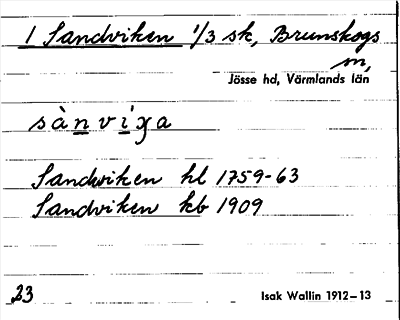 1 Sandviken 1/3 sk, Brunskogs
sn,
Jösse hd, Värmlands län
sànviɡa
Sandviken hl 1759-63
Sandviken kb 1909
23
Isak Wallin 1912-13